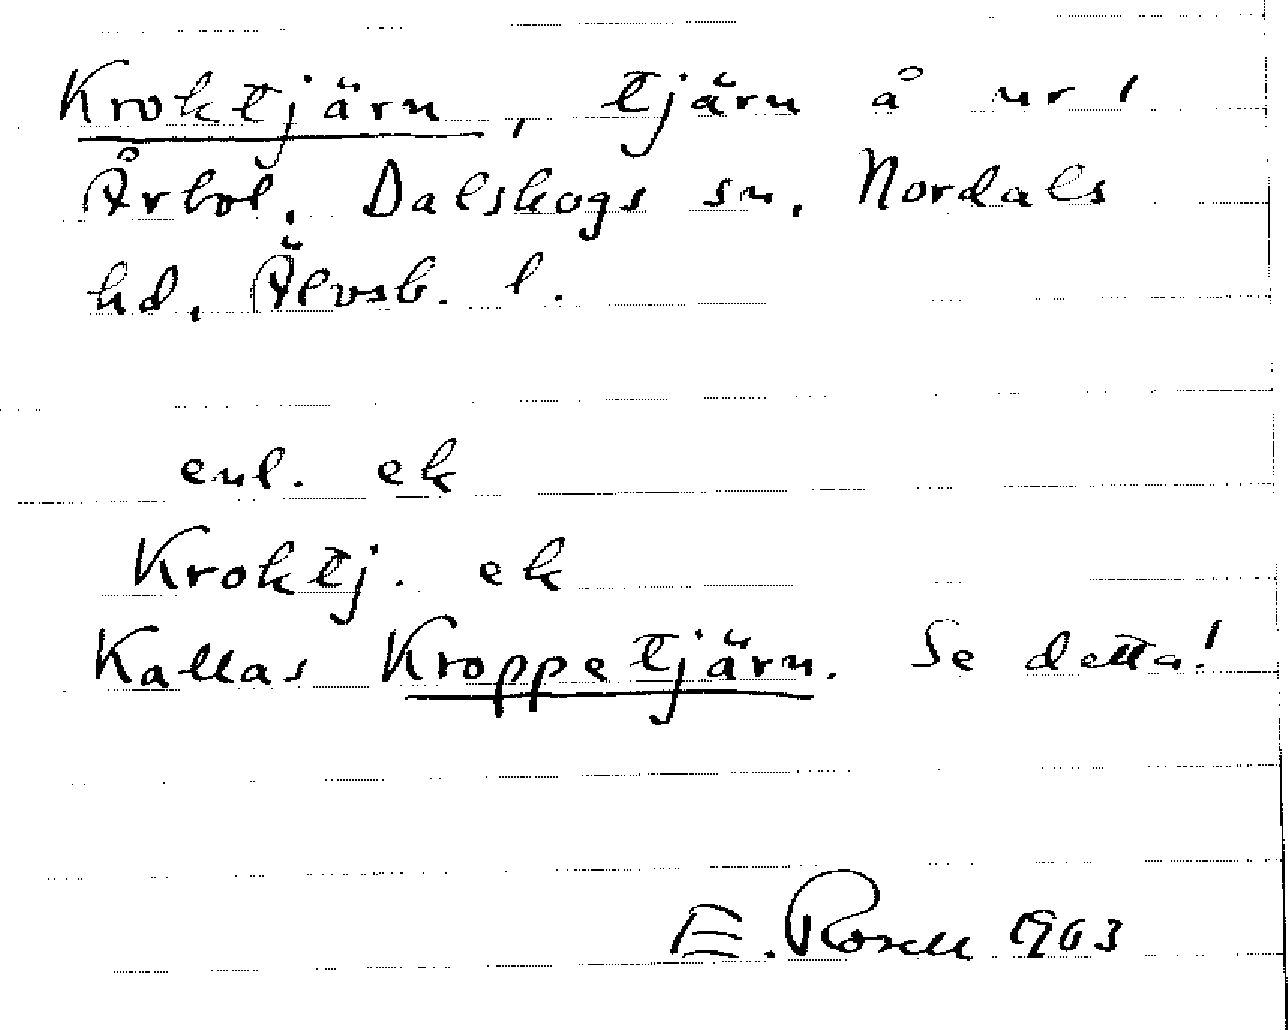 Kroktjärn, tjärn å ur 1
Årbol. Dalskogs sn. Nordals
hd. Älvsb. l.
enl. ek
Kroktj. ek
Kallas Kroppetjärn. Se detta!
E. Rosell 1963